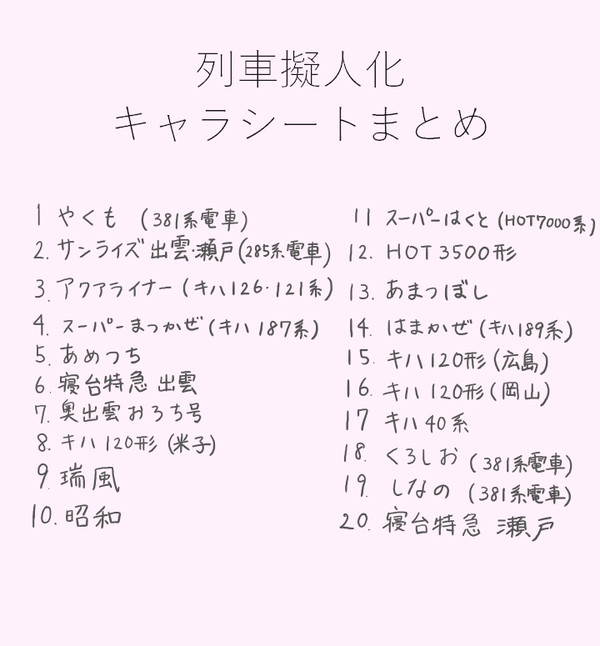 列車擬人化
キャラシートまとめ
1 やくも (381系電車)
2. サンライズ 出雲・瀬戸(285系電車)
3. アクアライナー (キハ126・121系)
4. スーパーまつかぜ (キハ 187系)
5. あめつち
6. 寝台特急 出雲
7. 奥出雲おろち号
8. キハ 120形 (米子)
9. 瑞風
10. 昭和
11 スーパーはくと (HOT7000系)
12. HOT 3500形
13. あまつぼし
14. はまかぜ (キハ189系)
15. キハ 120形 (広島)
16. キハ 120形 (岡山)
17 キハ 40系
18. くろしお (381系電車)
19. しなの (381系電車)
20. 寝台特急 瀬戸